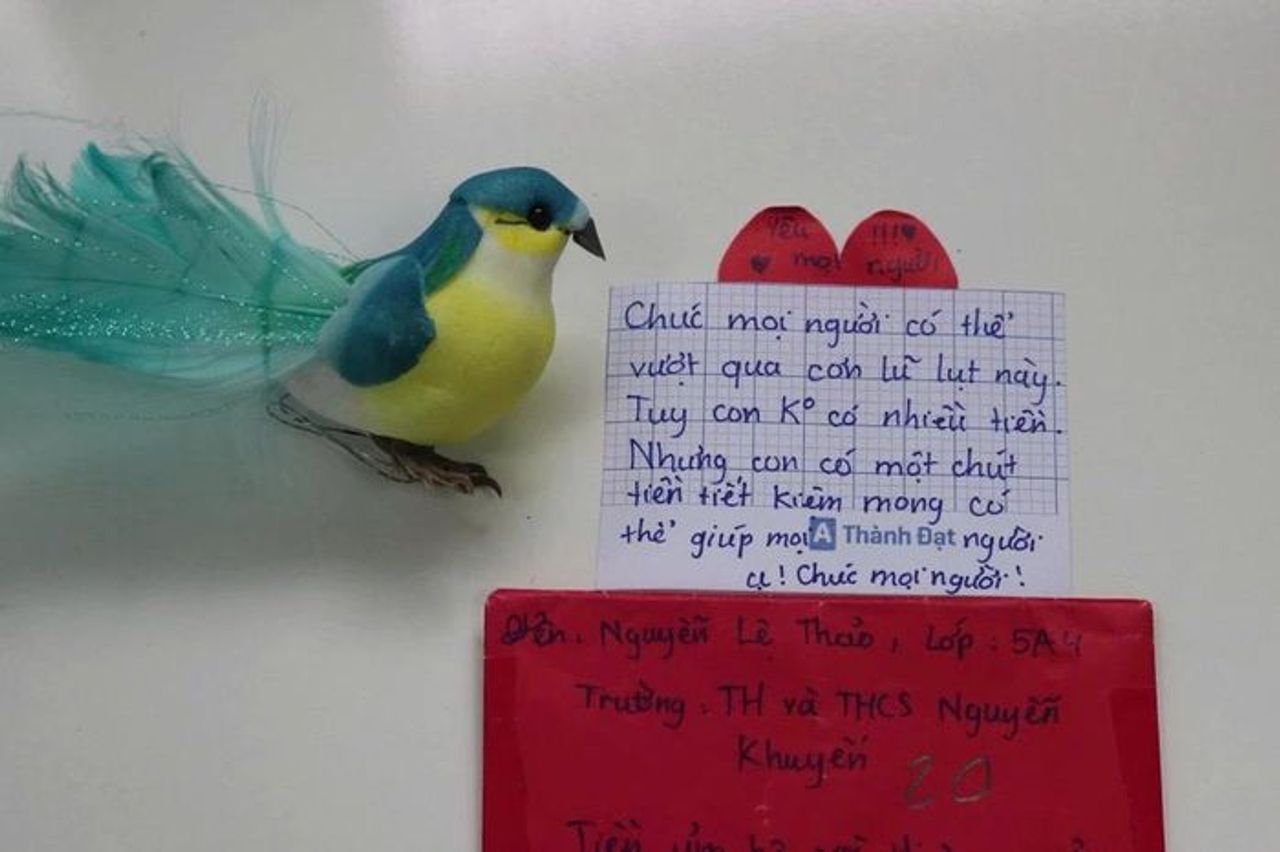 Yêu !!!
mọi người
Chúc mọi người có thể
vượt qua cơn lũ lụt này.
Tuy con K° có nhiều tiền.
Nhưng con có một chút
tiền tiết kiệm mong có
thể giúp mọi người
A Thành Đạt
ạ! Chúc mọi người!
Tên: Nguyễn Lê Thảo, Lớp: 5A4
Trường: TH và THCS Nguyễn
Khuyến 20
Tiền ủng hộ